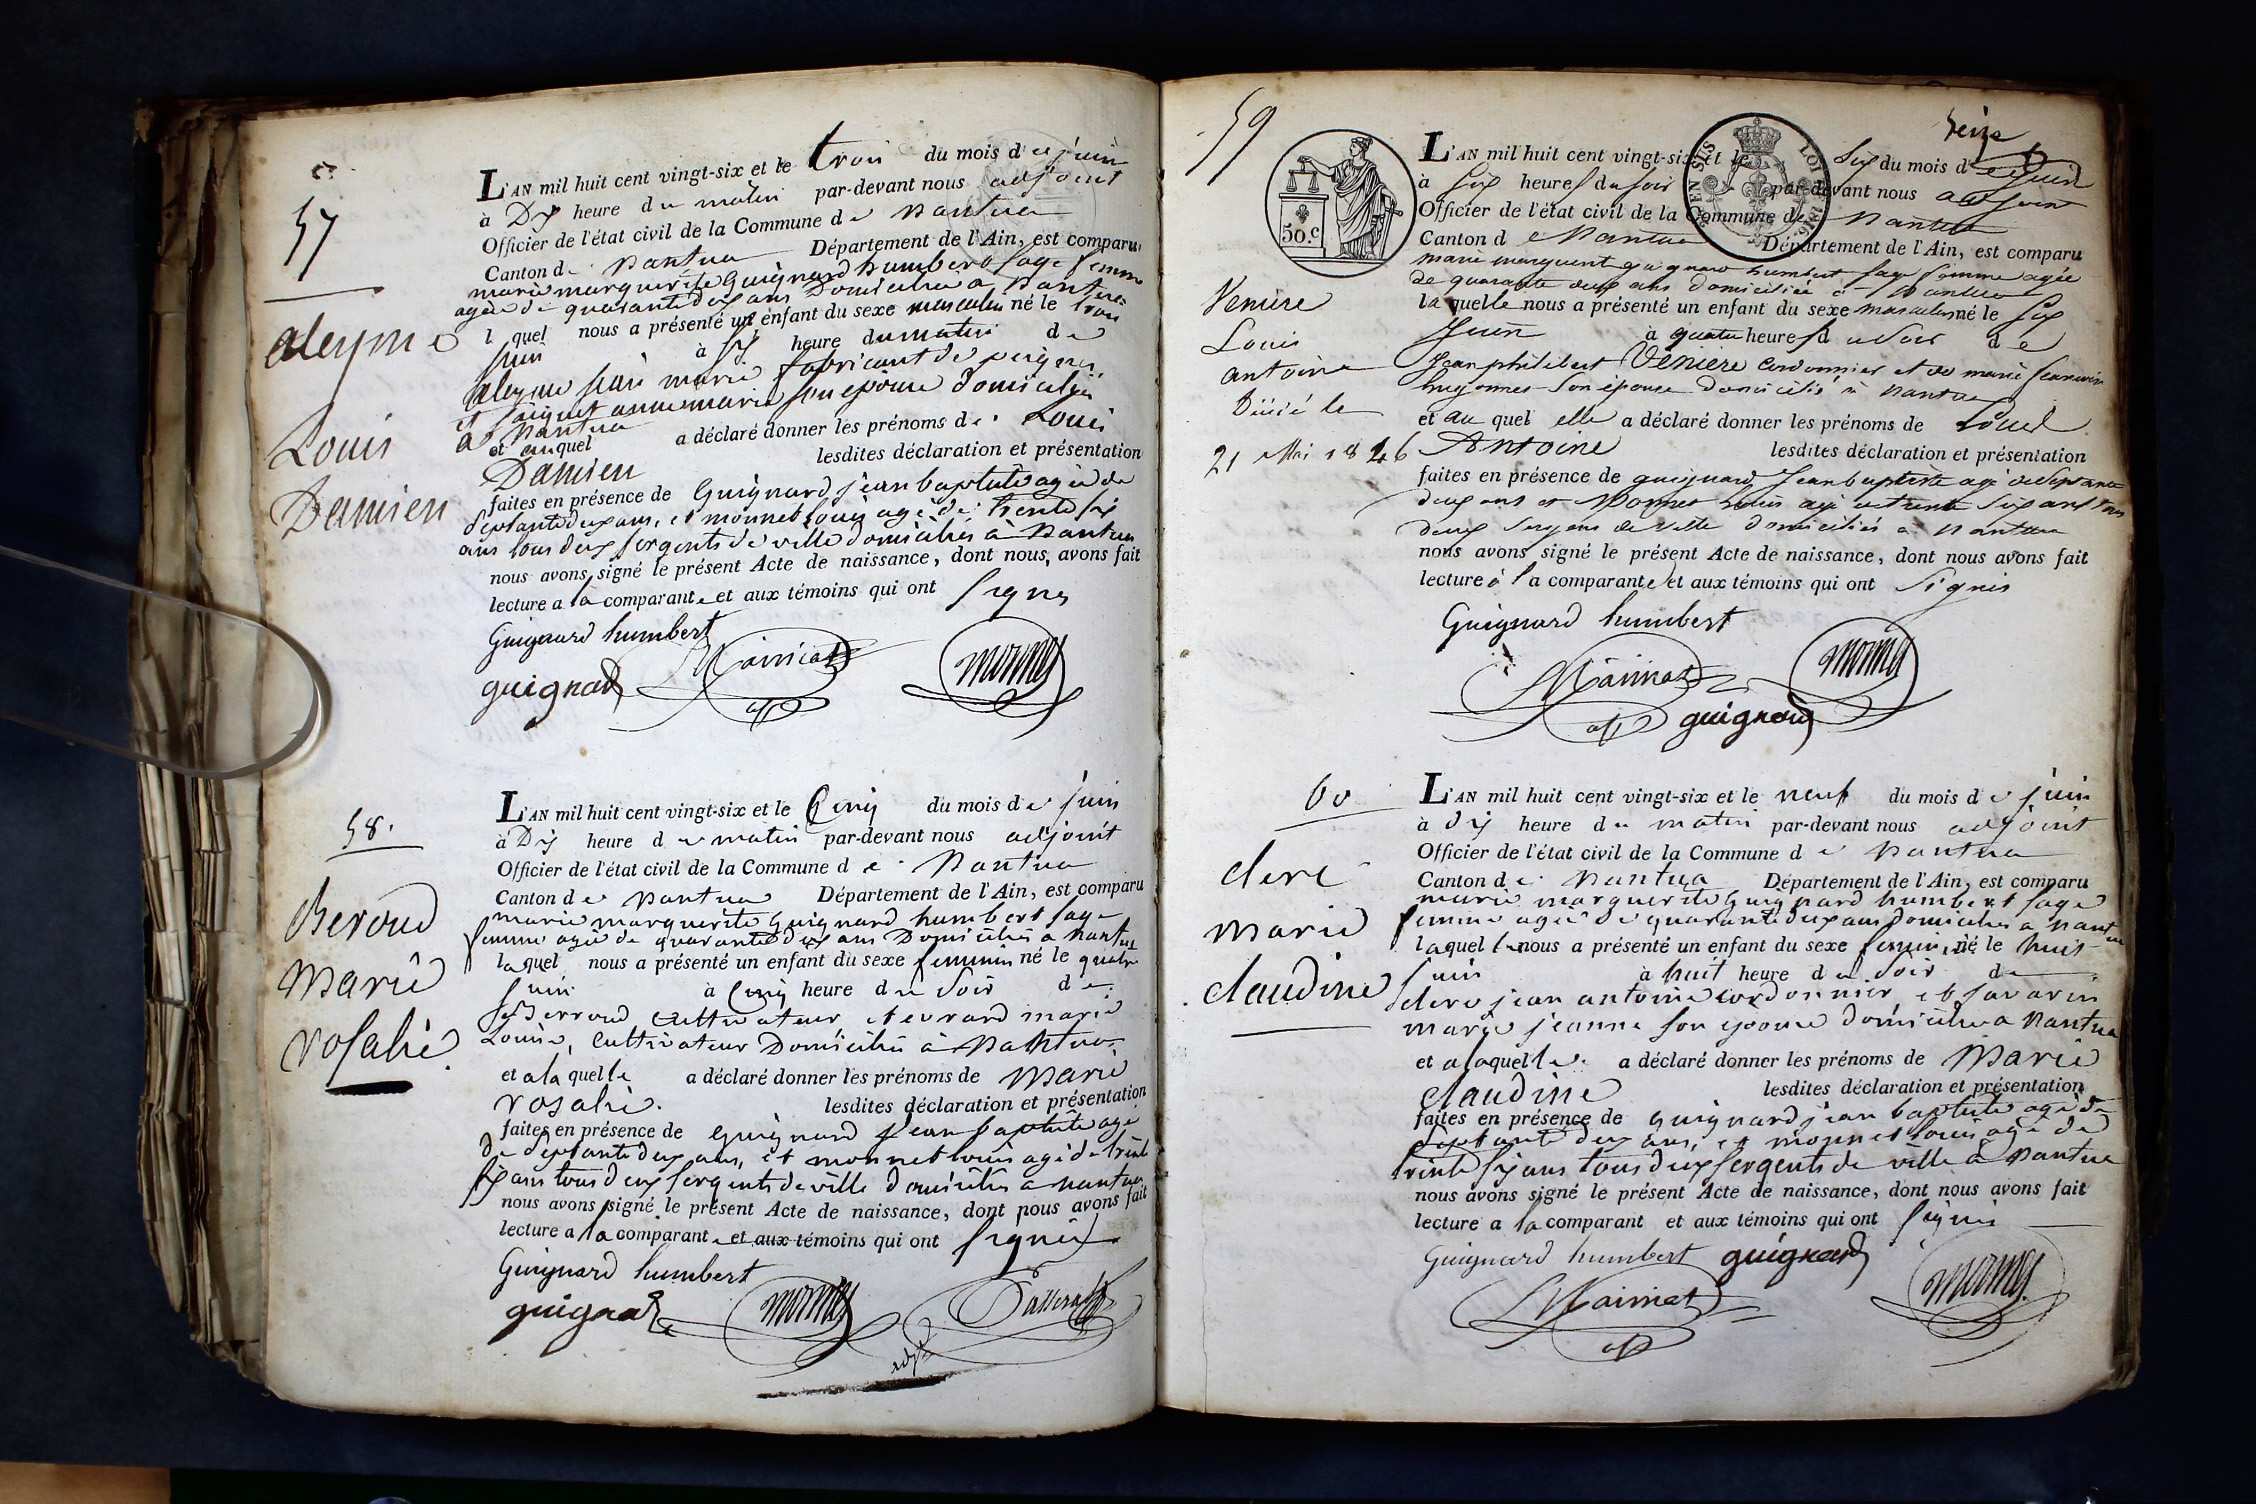 57
aleyme
Louis
Damien
L'AN mil huit cent vingt-six et le trois du mois de juin
à Dix heure du matin par-devant nous adjoint
Officier de l'état civil de la Commune de Nantua
Canton de Nantua Département de l'Ain, est comparu
marie marguerite Guignard humbert sage femme
agée de quarante deux ans Domiciliée a Nantua
l quel nous a présenté un enfant du sexe masculin né le trois
juin à six heure du matin de
aleyme marie fabricant de peignes
et anne marie son epouse domiciliés
à Nantua
et au quel a déclaré donner les prénoms de Louis
Damien lesdites déclaration et présentation
faites en présence de Guignard jean baptiste agé de
septante deux ans, et monnet Louis agé de trente six
ans tous deux sergents de ville domiciliés à Nantua
nous avons signé le présent Acte de naissance, dont nous, avons fait
lecture a la comparante et aux témoins qui ont signes
Guignard humbert
guignard
58.
Beroud
Marie
rosalie.
L'AN mil huit cent vingt-six et le Cinq du mois de juin
à Dix heure du matin par-devant nous adjoint
Officier de l'état civil de la Commune de Nantua
Canton de Nantua Département de l'Ain, est comparu
marie marguerite Guignard humbert sage
femme agée de quarante deux ans Domiciliée a Nantua
laquel nous a présenté un enfant du sexe feminin né le quatre
juin à Cinq heure du soir de
Berroud Cultivateur et evrard marie
Louise, Cultivateur Domiciliés à Nantua
et a la quelle a déclaré donner les prénoms de Marie
rosalie. lesdites déclaration et présentation
faites en présence de Guignard jean baptiste agé
de septante deux ans, et monnet louis agé de trente
six ans tous deux sergents de ville domiciliés a nantua
nous avons signé le présent Acte de naissance, dont nous avons fait
lecture a la comparante et aux témoins qui ont signés
Guignard humbert
guignard
adjt
Seize
59
50.c
EN SUS
LOI DE 1816.
Veniere
Louis
antoine
Décédé le
21 Mai 1846
L'AN mil huit cent vingt-six et le Six du mois de Juin
à six heures du soir par-devant nous adjoint
Officier de l'état civil de la Commune de Nantua
Canton de Nantua Département de l'Ain, est comparu
marie marguerit guignard humbert sage femme agée
de quarante deux ans domiciliée à Nantua
la quelle nous a présenté un enfant du sexe masculin né le six
Juin à quatre heures du soir de
Jean philibert Véniere cordonnier et de marie
hugonnet son épouse domiciliés à nantua
et au quel elle a déclaré donner les prénoms de Louis
Antoine lesdites déclaration et présentation
faites en présence de guignard Jean baptiste agé de septante
deux ans et Monnet Louis agé de trente six ans tous
deux sergens de ville domiciliés à nantua
nous avons signé le présent Acte de naissance, dont nous avons fait
lecture à la comparante et aux témoins qui ont signés
Guignard humbert
guignard
60
clerc
marie
claudine
L'AN mil huit cent vingt-six et le neuf du mois de juin
à dix heure du matin par-devant nous adjoint
Officier de l'état civil de la Commune de Nantua
Canton de Nantua Département de l'Ain, est comparu
marie marguerite Guignard humbert sage
femme agée de quarante deux ans domiciliée a nantua
laquelle nous a présenté un enfant du sexe feminin né le huit
juin à huit heure du soir de
clerc jean antoine cordonnier et savarin
marie jeanne son epouse domiciliés a Nantua
et a laquelle a déclaré donner les prénoms de Marie
claudine lesdites déclaration et présentation
faites en présence de Guignard jean baptiste agé de
septante deux ans, et monnet Louis agé de
trente six ans tous deux sergents de ville à Nantua
nous avons signé le présent Acte de naissance, dont nous avons fait
lecture a la comparant et aux témoins qui ont signés
Guignard humbert guignard